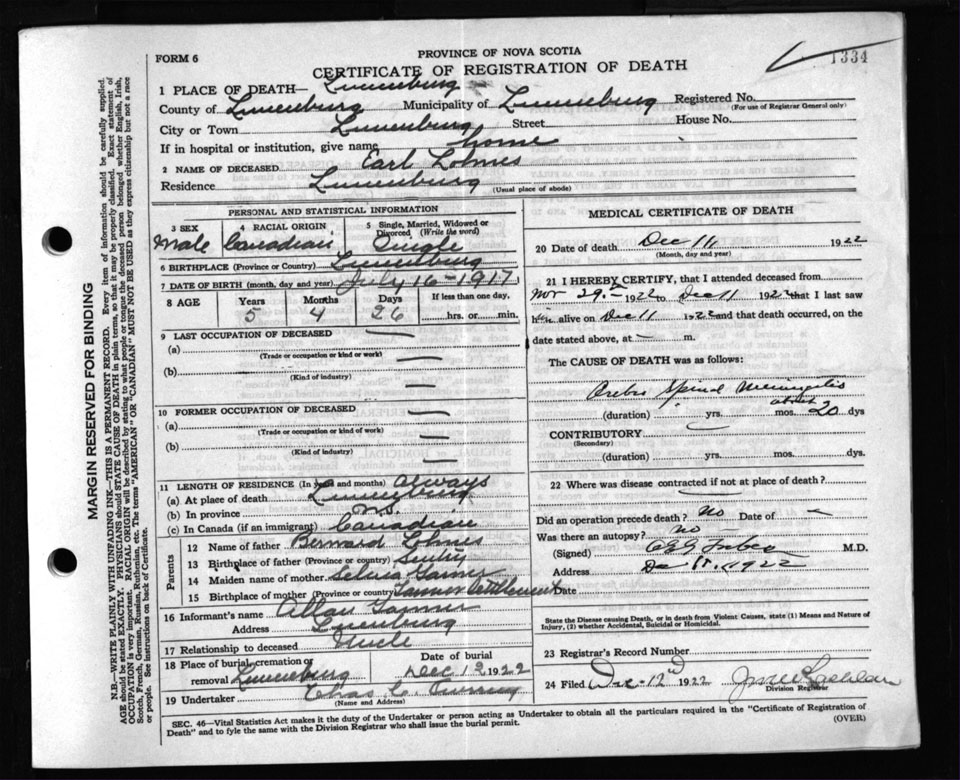 PROVINCE OF NOVA SCOTIA
FORM 6
CERTIFICATE OF REGISTRATION OF DEATH
1334
1 PLACE OF DEATH— Lunenburg
County of Lunenburg Municipality of Lunenburg Registered No.
(For use of Registrar General only)
City or Town Lunenburg Street House No.
If in hospital or institution, give name home
2 NAME OF DECEASED Earl Lohnes
Residence Lunenburg (Usual place of abode)
PERSONAL AND STATISTICAL INFORMATION
3 SEX 4 RACIAL ORIGIN 5 Single, Married, Widowed or Divorced (Write the word)
Male Canadian Single
6 BIRTHPLACE (Province or Country) Lunenburg
7 DATE OF BIRTH (month, day and year) July 16-1917
8 AGE Years Months Days If less than one day.
5 4 26 hrs. or min.
9 LAST OCCUPATION OF DECEASED
(a) —
(Trade or occupation or kind or work)
(b) —
(Kind of industry)
10 FORMER OCCUPATION OF DECEASED
(a) —
(Trade or occupation or kind of work)
(b) —
(Kind of industry)
11 LENGTH OF RESIDENCE (In years and months) Always
(a) At place of death Lunenburg
(b) In province N.S.
(c) In Canada (if an immigrant) Canadian
Parents
12 Name of father Bernard Lohnes
13 Birthplace of father (Province or country)
14 Maiden name of mother Selena
15 Birthplace of mother (Province or country) Tanner Settlement
16 Informant's name Allan Tanner
Address Lunenburg
17 Relationship to deceased Uncle
18 Place of burial, cremation or removal Lunenburg Date of burial Dec 13 1922
19 Undertaker Chas C.
(Name and Address)
MEDICAL CERTIFICATE OF DEATH
20 Date of death Dec 11 1922
(Month, day and year)
21 I HEREBY CERTIFY, that I attended deceased from
Nov 29 1922 to Dec 11 1922 that I last saw
him alive on Dec 11 1922 and that death occurred, on
date stated above, at — m.
The CAUSE OF DEATH was as follows:
Cerebro Spinal Meningitis
(duration) yrs. mos. about 20 dys
CONTRIBUTORY
(Secondary)
(duration) yrs. mos. dys.
22 Where was disease contracted if not at place of death?
Did an operation precede death? No Date of —
Was there an autopsy? no —
(Signed) M.D.
Address Dec 11, 1922
Date
State the Disease causing Death, or in death from Violent Causes, state (1) Means and Nature of Injury, (2) whether Accidental, Suicidal or Homicidal.
23 Registrar's Record Number
24 Filed Dec-12 1922
Division Registrar
SEC. 46—Vital Statistics Act makes it the duty of the Undertaker or person acting as Undertaker to obtain all the particulars required in the "Certificate of Registration of
Death" and to fyle the same with the Division Registrar who shall issue the burial permit.
(OVER)
MARGIN RESERVED FOR BINDING
N.B.—WRITE PLAINLY WITH UNFADING INK—THIS IS A PERMANENT RECORD. Every item of information should be carefully supplied.
AGE should be stated EXACTLY. PHYSICIANS should STATE CAUSE OF DEATH in plain terms, so that it may be properly classified. Exact statement of
OCCUPATION is very important. RACIAL ORIGIN will be described by stating to what people or tongue the deceased person belonged whether English, Irish,
Scotch, French, German, Russian, Ruthenian, etc. The terms "AMERICAN" OR "CANADIAN" MUST NOT BE USED as they express citizenship but not a race
or people. See instructions on back of Certificate.